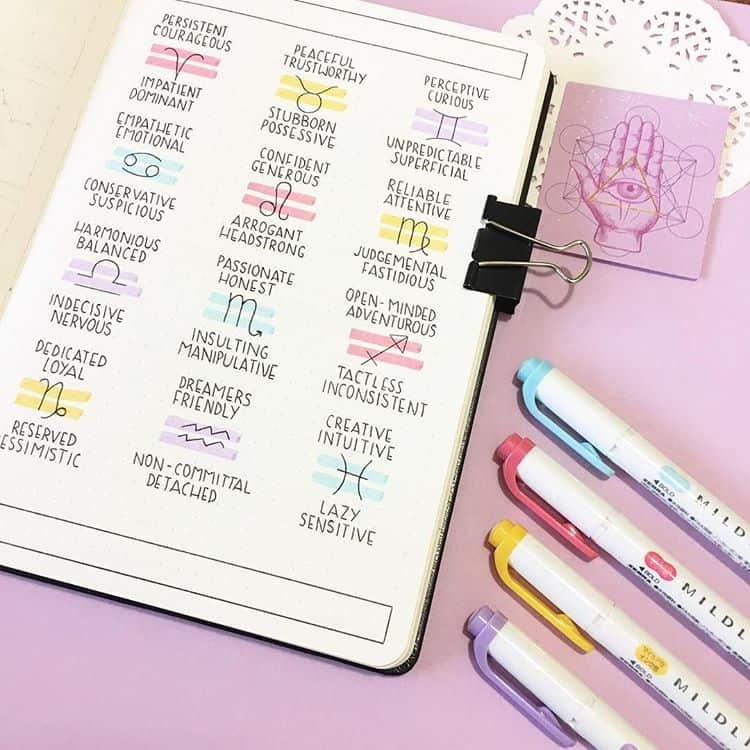 PERSISTENT
COURAGEOUS
IMPATIENT
DOMINANT
PEACEFUL
TRUSTWORTHY
STUBBORN
POSSESSIVE
PERCEPTIVE
CURIOUS
UNPREDICTABLE
SUPERFICIAL
EMPATHETIC
EMOTIONAL
CONSERVATIVE
SUSPICIOUS
CONFIDENT
GENEROUS
ARROGANT
HEADSTRONG
RELIABLE
ATTENTIVE
JUDGEMENTAL
FASTIDIOUS
HARMONIOUS
BALANCED
INDECISIVE
NERVOUS
PASSIONATE
HONEST
INSULTING
MANIPULATIVE
OPEN-MINDED
ADVENTUROUS
TACTLESS
INCONSISTENT
DEDICATED
LOYAL
RESERVED
ESSIMISTIC
DREAMERS
FRIENDLY
NON-COMMITTAL
DETACHED
CREATIVE
INTUITIVE
LAZY
SENSITIVE
BOLD
ZEBRA
MILDL
BOLD
ZEBRA
MILDL
BOLD
ZEBRA
MILDL
MILDL